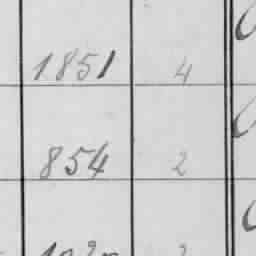 1851 4
854 2